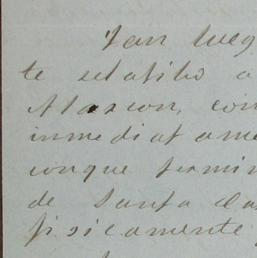 Tan lueg
te relatibo a
Alarcon, con
inmediatame
conque termin
de Santa Ca
fisicamente